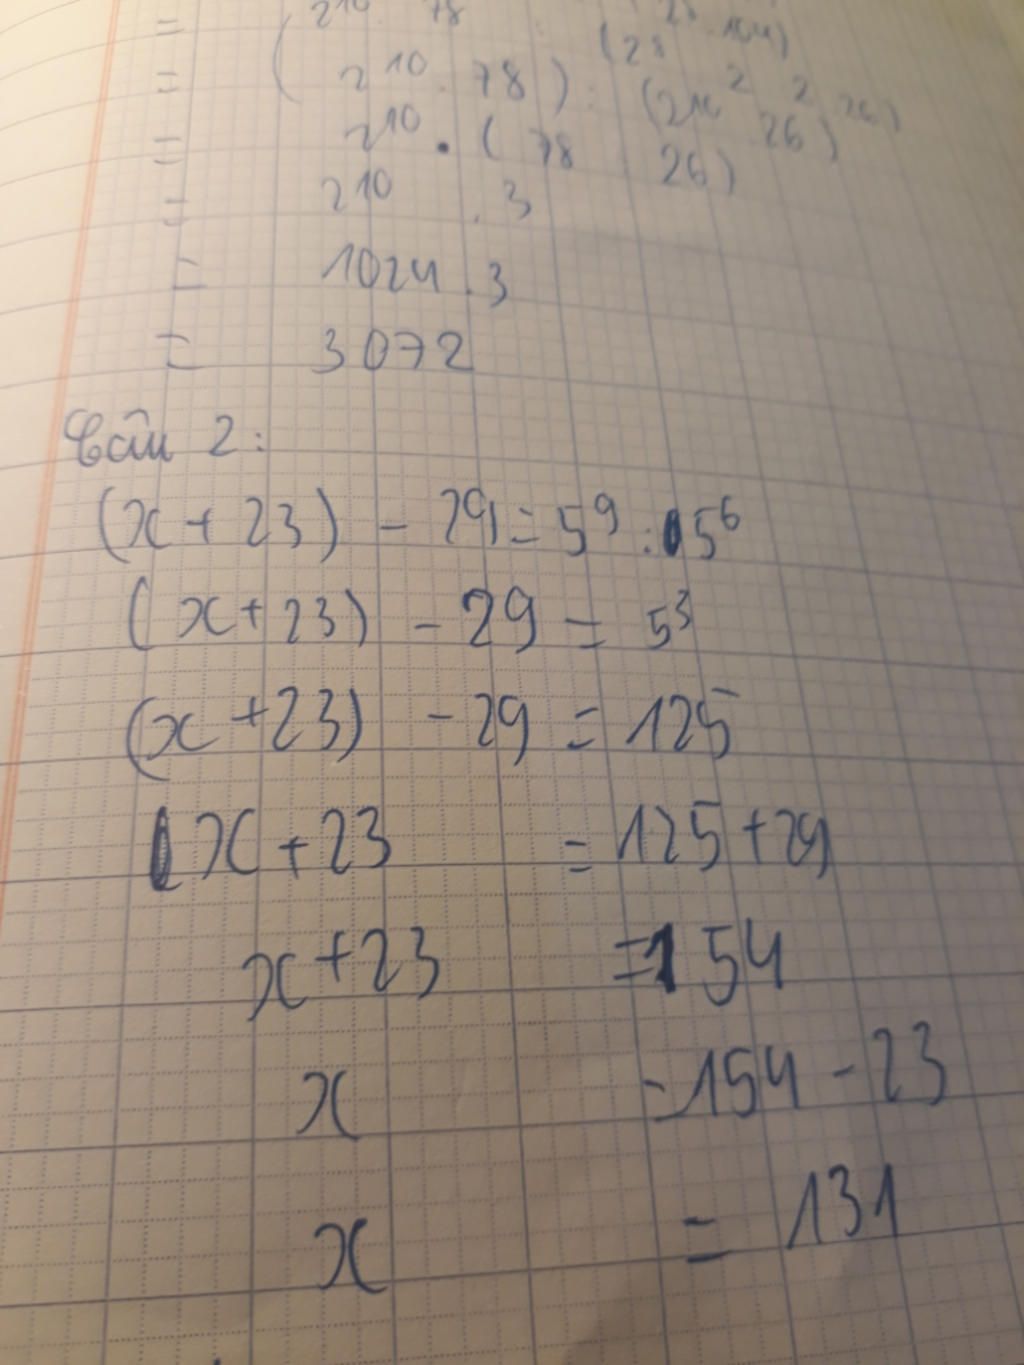 = (2¹⁰ . 78) : (2⁸ . 104)
= (2¹⁰ . 78) : (2⁸ . 2² . 26)
= (2¹⁰ . 78) : (2¹⁰ . 26)
= 2¹⁰ . (78 : 26)
= 2¹⁰ . 3
= 1024 . 3
= 3072
Câu 2:
(x + 23) - 29 = 5⁹ : 5⁶
(x + 23) - 29 = 5³
(x + 23) - 29 = 125
x + 23 = 125 + 29
x + 23 = 154
x = 154 - 23
x = 131